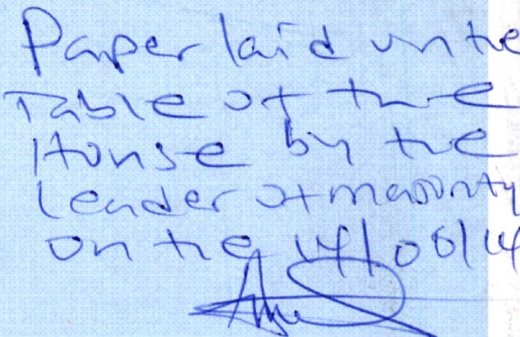 Paper laid on the
Table of the
House by the
Leader of majority
on the 14/08/14